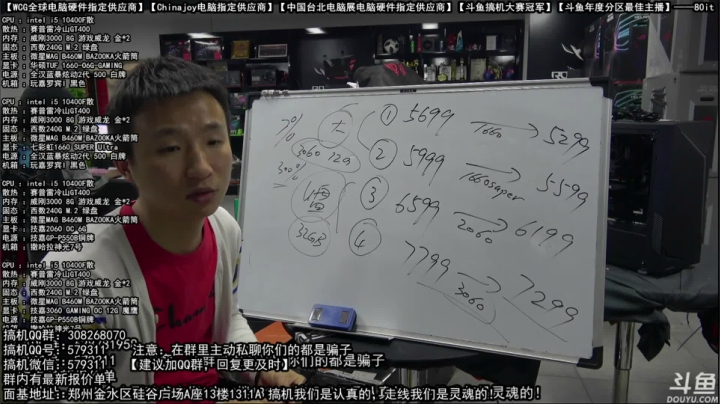 【WCG全球电脑硬件指定供应商】【Chinajoy电脑指定供应商】【中国台北电脑展电脑硬件指定供应商】【斗鱼搞机大赛冠军】【斗鱼年度分区最佳主播】——80it
CPU : intel i5 10400F散
散热 : 赛普雷冷山GT400
内存 : 威刚3000 8G 游戏威龙 金*2
固态 : 西数240G M.2 绿盘
主板 : 微星MAG B460M BAZOOKA火箭筒
显卡 : 华硕TUF 1660-O6G-GAMING
电源 : 全汉蓝暴炫动2代 500 白牌
机箱 : 玩嘉罗宾1 黑色
CPU : intel i5 10400F散
散热 : 赛普雷冷山GT400
内存 : 威刚3000 8G 游戏威龙 金*2
固态 : 西数240G M.2 绿盘
主板 : 微星MAG B460M BAZOOKA火箭筒
显卡 : 七彩虹1660 SUPER Ultra
电源 : 全汉蓝暴炫动2代 500 白牌
机箱 : 玩嘉罗宾1 黑色
CPU : intel i5 10400F散
散热 : 赛普雷冷山GT400
内存 : 威刚3000 8G 游戏威龙 金*2
固态 : 西数240G M.2 绿盘
主板 : 微星MAG B460M BAZOOKA火箭筒
显卡 : 技嘉2060 OC 6G
电源 : 技嘉GP-P550B铜牌
机箱 : 撒哈拉神光7号
CPU : intel i5 10400F散
散热 : 赛普雷冷山GT400
内存 : 威刚3000 8G 游戏威龙 金*2
固态 : 西数240G M.2 绿盘
主板 : 微星MAG B460M BAZOOKA火箭筒
显卡 : 技嘉3060 GAMING OC 12G 魔鹰
电源 : 技嘉GP-P550B铜牌
① 5699 1660 5299
② 5999 1660super 5599
③ 6599 2060 6199
④ 7799 3060 7299
3060 12G
32GB
搞机QQ群: 308268070
搞机QQ号: 579311 注意: 在群里主动私聊你们的都是骗子
搞机微信: 579311 【建议加QQ群 回复更及时】
群内有最新报价单
面基地址: 郑州金水区硅谷广场A座13楼1311A 搞机我们是认真的,走线我们是灵魂的!
斗鱼
DOUYU.COM